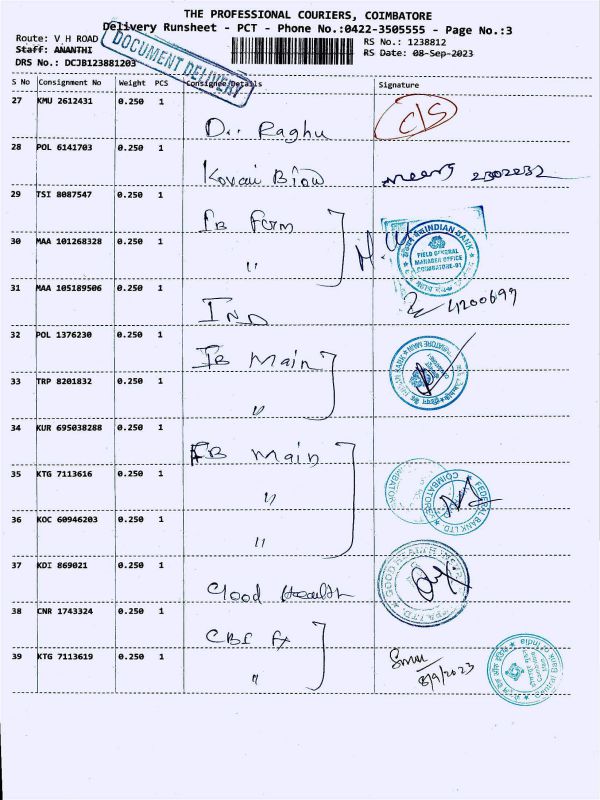 THE PROFESSIONAL COURIERS, COIMBATORE
Delivery Runsheet - PCT - Phone No.:0422-3505555 - Page No.:3
Route: V H ROAD
RS No.: 1238812
Staff: ANANTHI
RS Date: 08-Sep-2023
DRS No.: DCJB123881203
DOCUMENT DELIVERY
S No Consignment No Weight PCS Consignee Details Signature
27 KMU 2612431 0.250 1
Dr. Raghu C/S
28 POL 6141703 0.250 1
Kovai Blow 2302232
29 TSI 8087547 0.250 1
IB Farm
INDIAN BANK
FIELD GENERAL
MANAGER OFFICE
COIMBATORE-01
30 MAA 101268328 0.250 1
"
31 MAA 105189506 0.250 1
IND 4200699
32 POL 1376230 0.250 1
IB Main
33 TRP 8201832 0.250 1
"
34 KUR 695038288 0.250 1
FB Main
35 KTG 7113616 0.250 1
"
FEDERAL BANK LTD
COIMBATORE
36 KOC 60946203 0.250 1
"
37 KDI 869021 0.250 1
Good Health
GOOD HEALTH
38 CNR 1743324 0.250 1
CBI Fx
39 KTG 7113619 0.250 1
"
8/9/2023
Central Bank of India